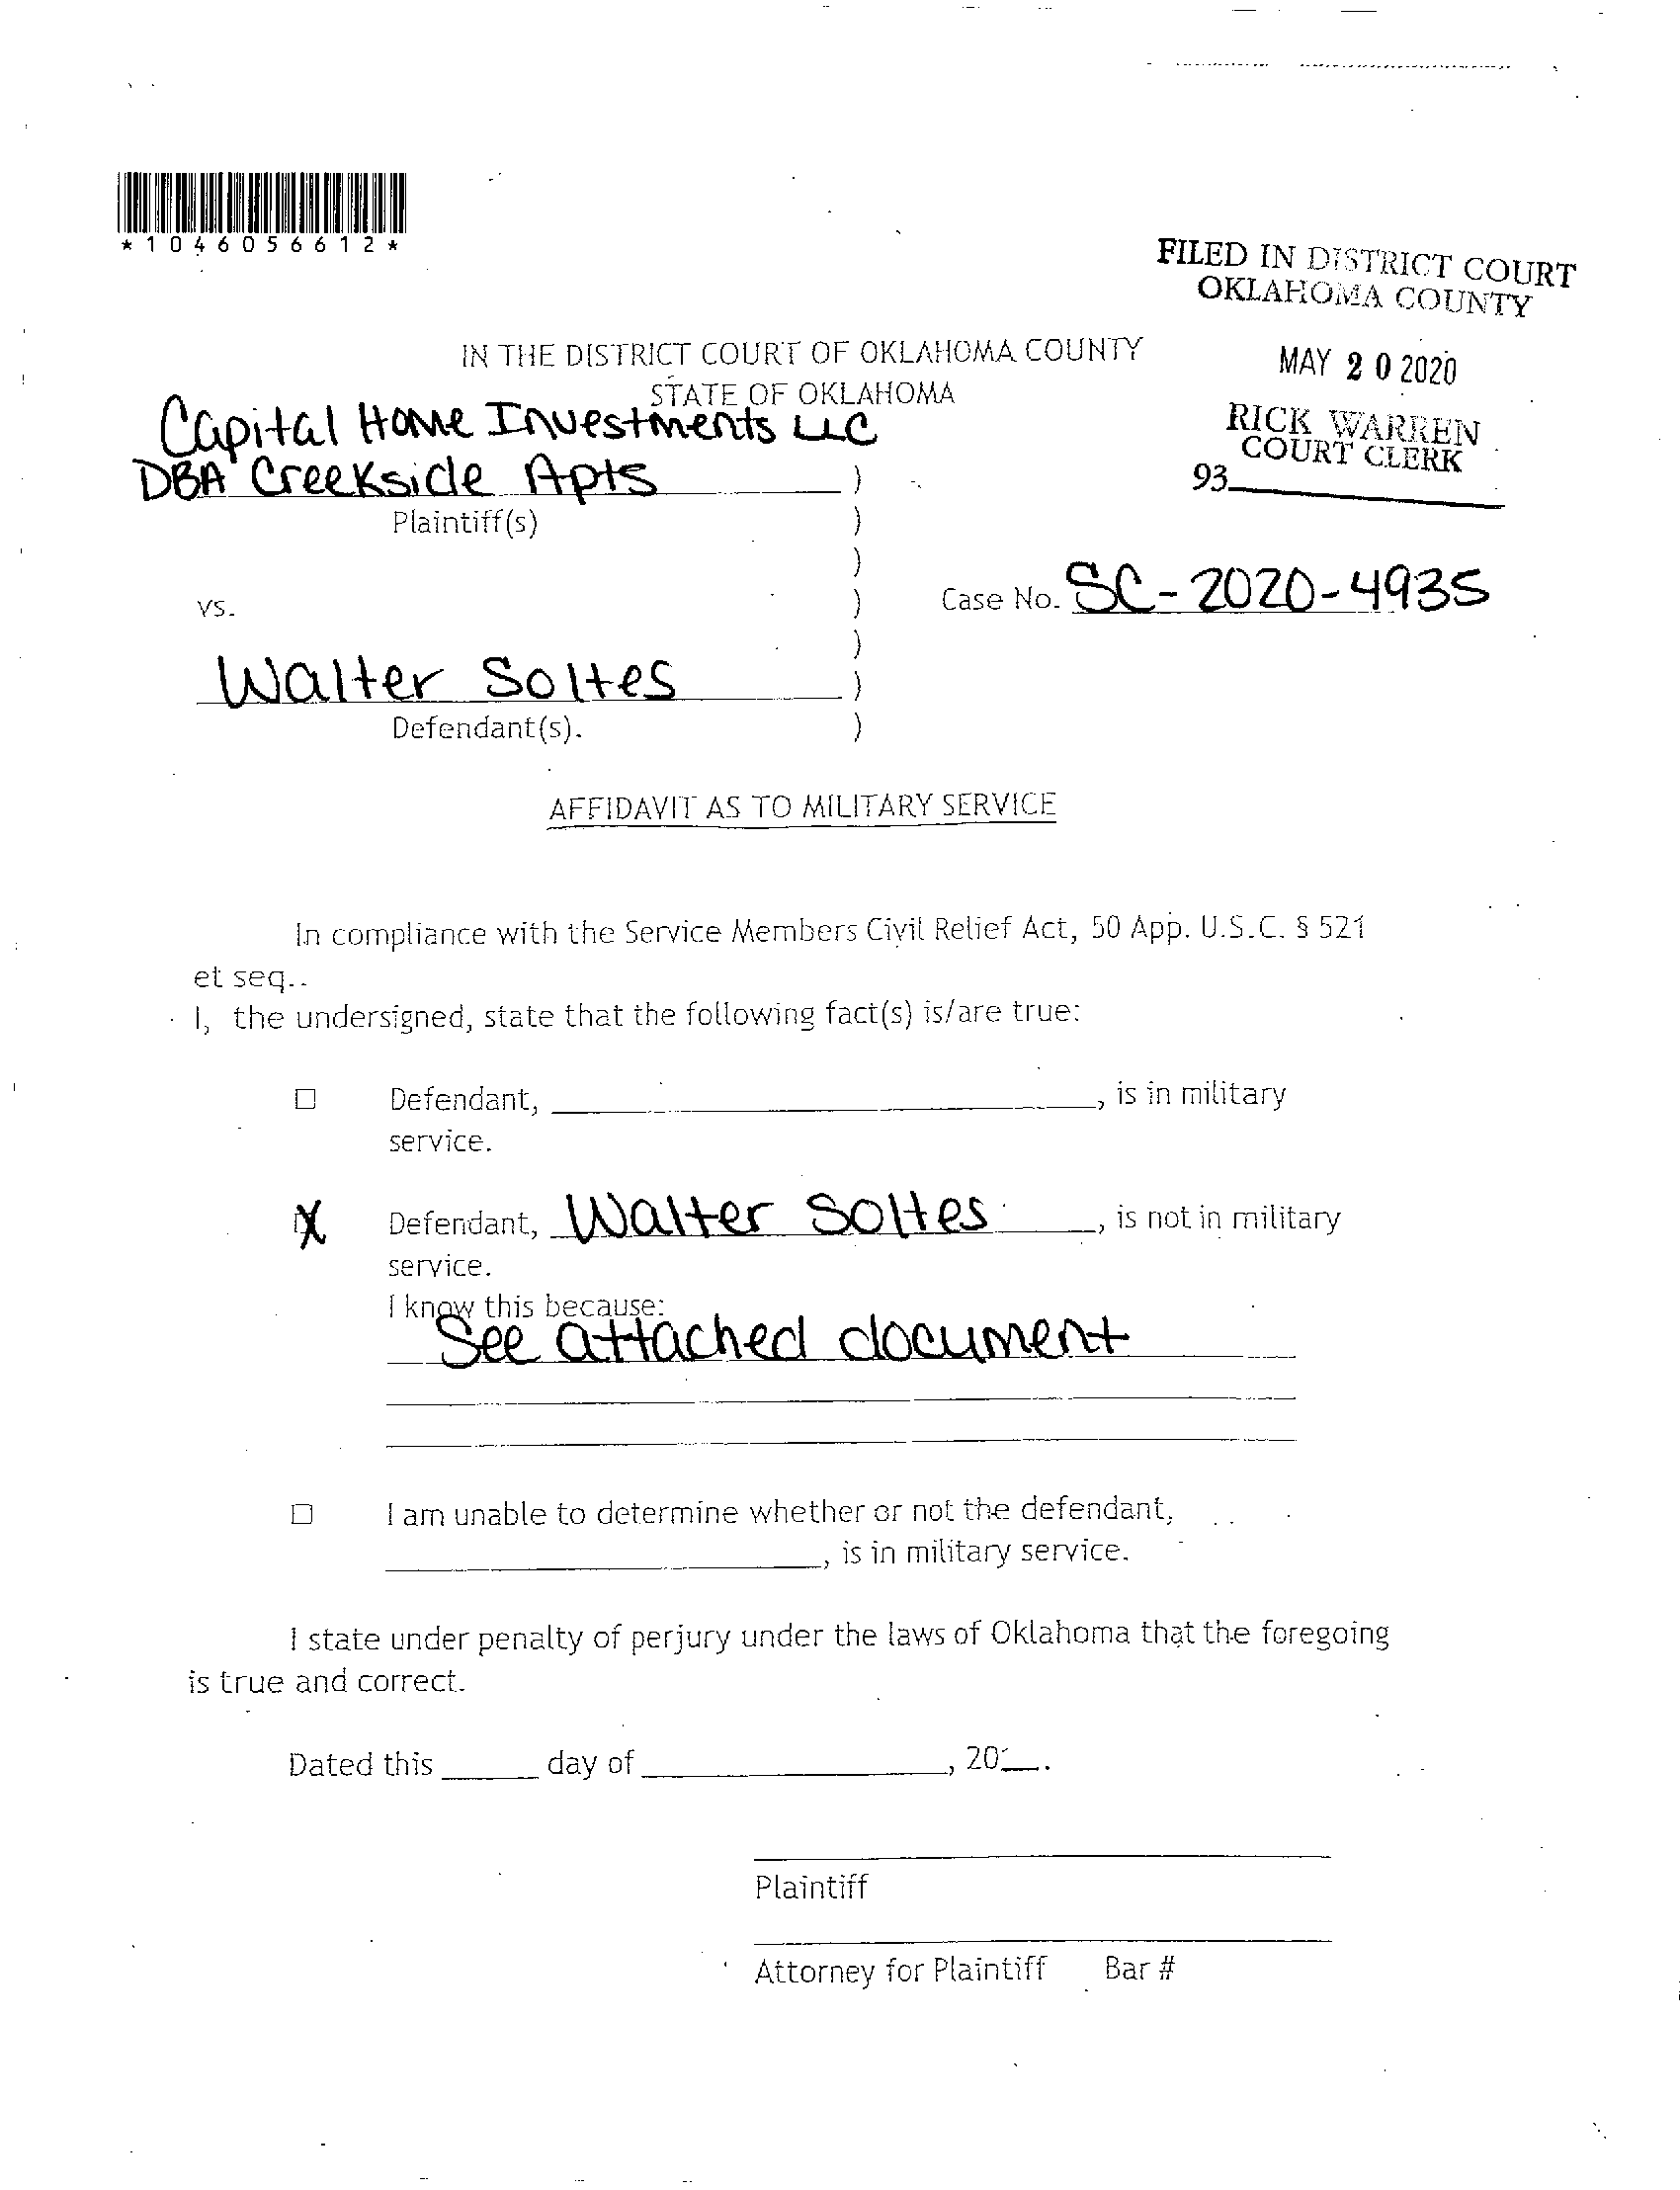 *1046056612*
FILED IN DISTRICT COURT
OKLAHOMA COUNTY
MAY 20 2020
RICK WARREN
COURT CLERK
93
IN THE DISTRICT COURT OF OKLAHOMA COUNTY
STATE OF OKLAHOMA
Capital Home Investments LLC
DBA Creekside Apts )
Plaintiff(s) )
)
vs. ) Case No. SC-2020-4935
)
Walter Soltes )
Defendant(s). )
AFFIDAVIT AS TO MILITARY SERVICE
In compliance with the Service Members Civil Relief Act, 50 App. U.S.C. § 521
et seq..
I, the undersigned, state that the following fact(s) is/are true:
☐ Defendant, ____________________, is in military
service.
X Defendant, Walter Soltes, is not in military
service.
I know this because:
See attached document
☐ I am unable to determine whether or not the defendant,
____________________, is in military service.
I state under penalty of perjury under the laws of Oklahoma that the foregoing
is true and correct.
Dated this _____ day of _______________, 20__.
Plaintiff
Attorney for Plaintiff Bar #